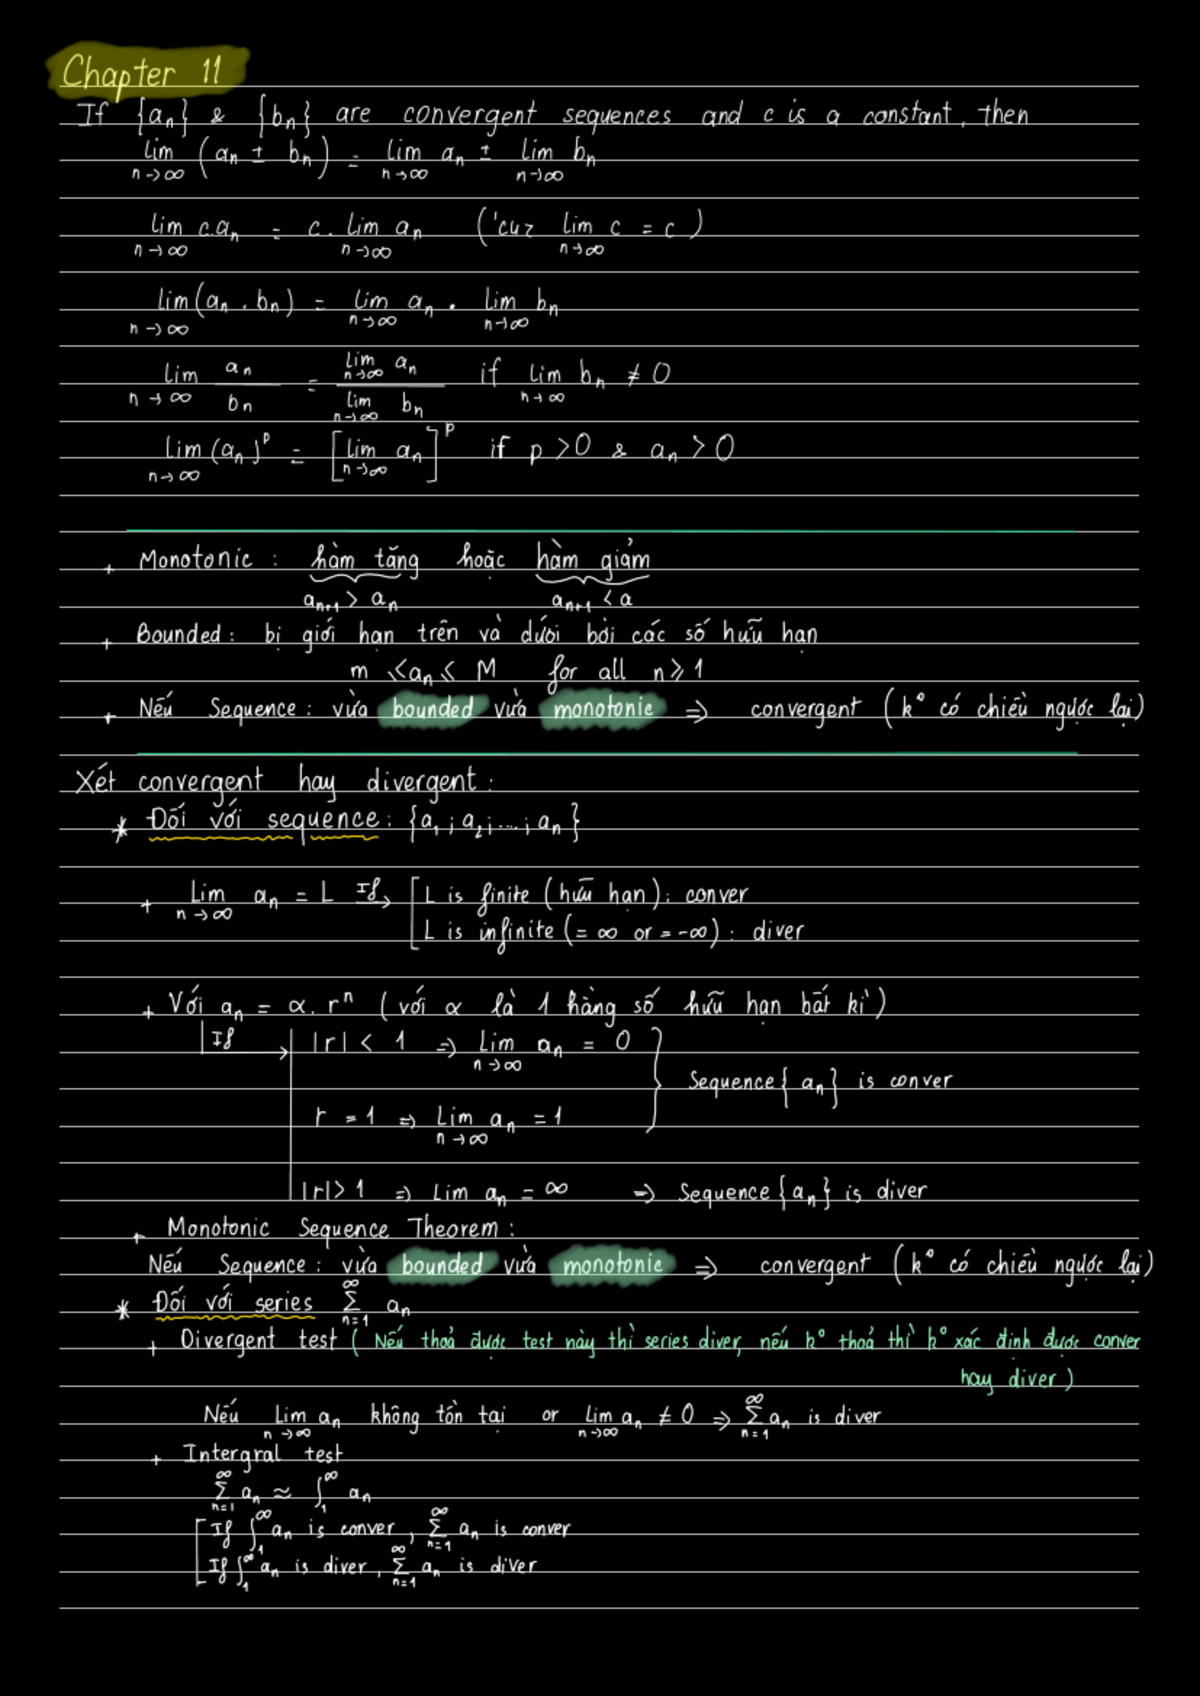 Chapter 11
If {aₙ} & {bₙ} are convergent sequences and c is a constant, then
lim n→∞ (aₙ ± bₙ) = lim n→∞ aₙ ± lim n→∞ bₙ
lim n→∞ c.aₙ = c. lim n→∞ aₙ ('cuz lim n→∞ c = c)
lim n→∞ (aₙ . bₙ) = lim n→∞ aₙ . lim n→∞ bₙ
lim n→∞ aₙ / bₙ = lim n→∞ aₙ / lim n→∞ bₙ if lim n→∞ bₙ ≠ 0
lim n→∞ (aₙ)ᵖ = [lim n→∞ aₙ]ᵖ if p > 0 & aₙ > 0
+ Monotonic : hàm tăng hoặc hàm giảm
aₙ₊₁ > aₙ aₙ₊₁ < a
+ Bounded : bị giới hạn trên và dưới bởi các số hữu hạn
m ≤ aₙ ≤ M for all n ≥ 1
+ Nếu Sequence : vừa bounded vừa monotonic ⇒ convergent (k° có chiều ngược lại)
Xét convergent hay divergent :
* Đối với sequence : {a₁ ; a₂ ; ... ; aₙ}
+ Lim n→∞ aₙ = L If → [ L is finite (hữu hạn) : conver
L is infinite (= ∞ or = -∞) : diver
+ Với aₙ = α. rⁿ (với α là 1 hằng số hữu hạn bất kì)
If → |r| < 1 ⇒ Lim n→∞ aₙ = 0
} Sequence {aₙ} is conver
r = 1 ⇒ Lim n→∞ aₙ = 1
|r| > 1 ⇒ Lim aₙ = ∞ ⇒ Sequence {aₙ} is diver
+ Monotonic Sequence Theorem :
Nếu Sequence : vừa bounded vừa monotonic ⇒ convergent (k° có chiều ngược lại)
* Đối với series ∞ Σ n=1 aₙ
+ Divergent test (Nếu thoả được test này thì series diver, nếu k° thoả thì k° xác định được conver
hay diver)
Nếu Lim n→∞ aₙ không tồn tại or lim n→∞ aₙ ≠ 0 ⇒ ∞ Σ n=1 aₙ is diver
+ Intergral test
∞ Σ n=1 aₙ ≈ ∫₁^∞ aₙ
[ If ∫₁^∞ aₙ is conver, ∞ Σ n=1 aₙ is conver
If ∫₁^∞ aₙ is diver, ∞ Σ n=1 aₙ is diver